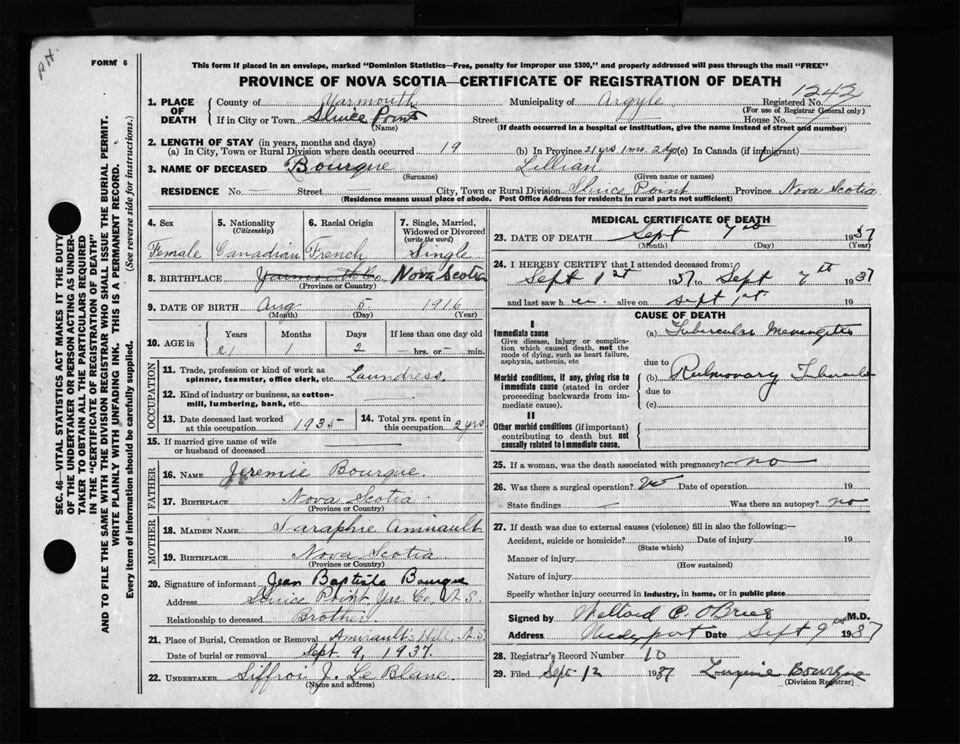 P.H.
FORM 6
This form if placed in an envelope, marked "Dominion Statistics—Free, penalty for improper use $300," and properly addressed will pass through the mail "FREE"
PROVINCE OF NOVA SCOTIA—CERTIFICATE OF REGISTRATION OF DEATH
SEC. 46—VITAL STATISTICS ACT MAKES IT THE DUTY
OF THE UNDERTAKER OR PERSON ACTING AS UNDER-
TAKER TO OBTAIN ALL THE PARTICULARS REQUIRED
IN THE "CERTIFICATE OF REGISTRATION OF DEATH"
AND TO FILE THE SAME WITH THE DIVISION REGISTRAR WHO SHALL ISSUE THE BURIAL PERMIT.
WRITE PLAINLY WITH UNFADING INK. THIS IS A PERMANENT RECORD.
Every item of information should be carefully supplied. (See reverse side for instructions.)
1. PLACE OF DEATH { County of Yarmouth Municipality of Argyle Registered No. 1242
(For use of Registrar General only)
If in City or Town Sluice Point Street House No.
(Name) (If death occurred in a hospital or institution, give the name instead of street and number)
2. LENGTH OF STAY (in years, months and days)
(a) In City, Town or Rural Division where death occurred 19 (b) In Province 21 yrs 1 mo. 2 dys (c) In Canada (if immigrant)
3. NAME OF DECEASED Bourque Lillian
(Surname) (Given name or names)
RESIDENCE No. Street City, Town or Rural Division Sluice Point Province Nova Scotia
(Residence means usual place of abode. Post Office Address for residents in rural parts not sufficient)
4. Sex 5. Nationality (Citizenship) 6. Racial Origin 7. Single, Married, Widowed or Divorced (write the word)
Female Canadian French Single
8. BIRTHPLACE Yarmouth Co. Nova Scotia
(Province or Country)
9. DATE OF BIRTH Aug 5 1916
(Month) (Day) (Year)
10. AGE in { Years Months Days If less than one day old
21 1 2 hrs. or min.
OCCUPATION
11. Trade, profession or kind of work as spinner, teamster, office clerk, etc. Laundress.
12. Kind of industry or business, as cotton-mill, lumbering, bank, etc.
13. Date deceased last worked at this occupation 1935 14. Total yrs. spent in this occupation 2 yrs
15. If married give name of wife or husband of deceased
FATHER
16. NAME Jeremie Bourque.
17. BIRTHPLACE Nova Scotia
(Province or Country)
MOTHER
18. MAIDEN NAME Saraphie Amirault
19. BIRTHPLACE Nova Scotia
(Province or Country)
20. Signature of informant Jean Baptiste Bourque
Address Sluice Point Yar. Co. N.S.
Relationship to deceased Brother
21. Place of Burial, Cremation or Removal Amirault's Hill, N.S
Date of burial or removal Sept. 9, 1937.
22. UNDERTAKER Siffroi J. Le Blanc.
(Name and address)
MEDICAL CERTIFICATE OF DEATH
23. DATE OF DEATH Sept 7th 1937
(Month) (Day) (Year)
24. I HEREBY CERTIFY that I attended deceased from:
Sept 1st 1937 to Sept 7th 1937
and last saw her alive on Sept 1st 19
CAUSE OF DEATH
I
Immediate cause
Give disease, injury or complication which caused death, not the mode of dying, such as heart failure, asphyxia, asthenia, etc
(a) Tubercular Meningitis
due to
Morbid conditions, if any, giving rise to immediate cause (stated in order proceeding backwards from immediate cause).
(b) Pulmonary
due to
(c)
II
Other morbid conditions (if important) contributing to death but not causally related to immediate cause.
25. If a woman, was the death associated with pregnancy? no
26. Was there a surgical operation? No Date of operation 19
State findings Was there an autopsy? no
27. If death was due to external causes (violence) fill in also the following:—
Accident, suicide or homicide? Date of injury 19
(State which)
Manner of injury
(How sustained)
Nature of injury
Specify whether injury occurred in industry, in home, or in public place
Signed by C. O'Brien M.D.
Address Date Sept 9th 1937
28. Registrar's Record Number 10
29. Filed Sept. 12 1937 Bourque
(Division Registrar)